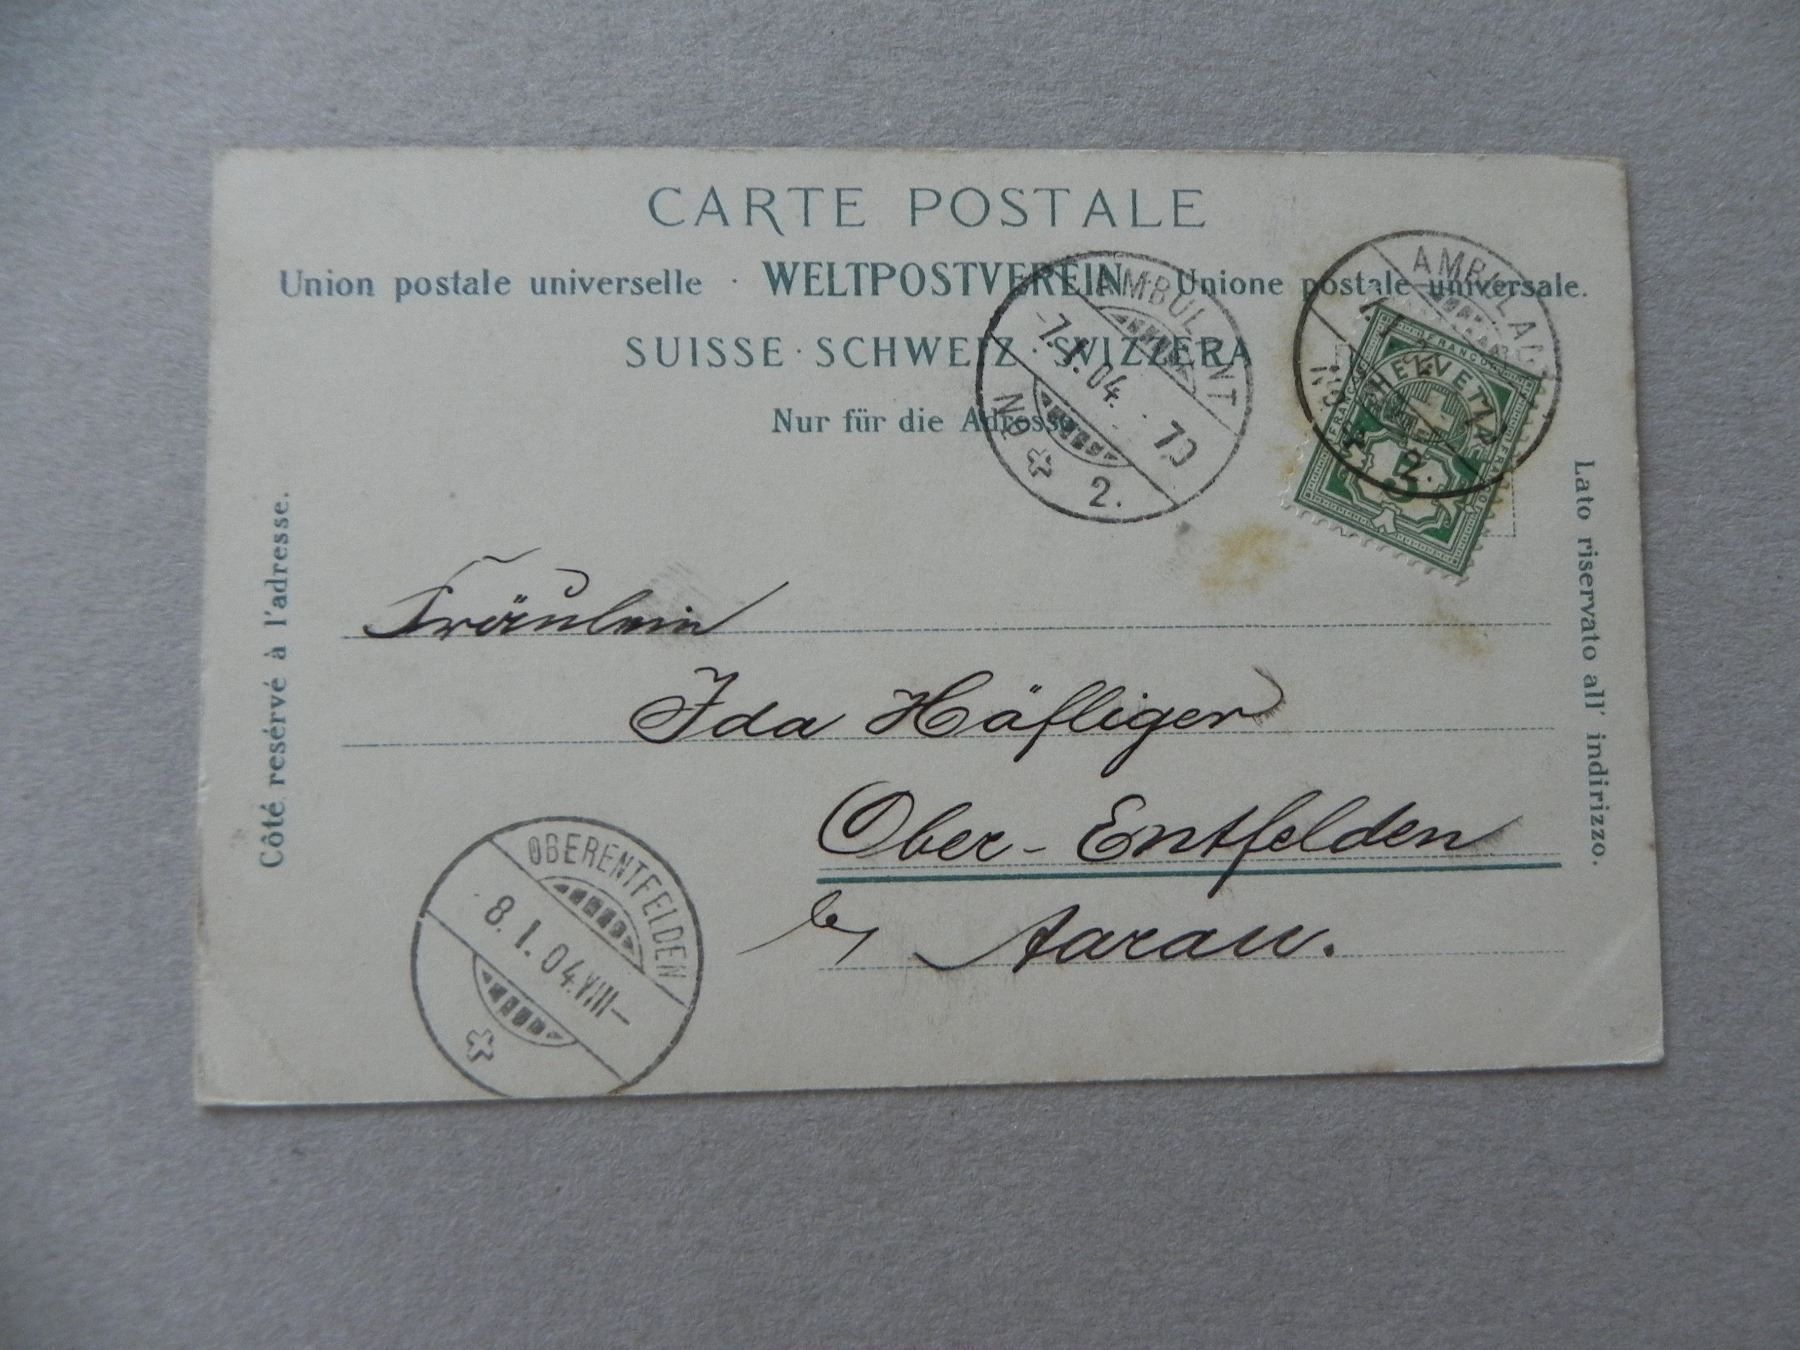 CARTE POSTALE
Union postale universelle · WELTPOSTVEREIN · Unione postale universale.
SUISSE · SCHWEIZ · SVIZZERA
Nur für die Adresse
AMBULANT
-7. I. 04. · 70
No 2.
AMBULANT
No 2.
FRANCO
HELVETIA
5
Côté resérvé à l'adresse.
Lato riservato all' indirizzo.
Fräulein
Ida Häfliger
Ober-Entfelden
by Aarau.
OBERENTFELDEN
-8. I. 04. VIII-